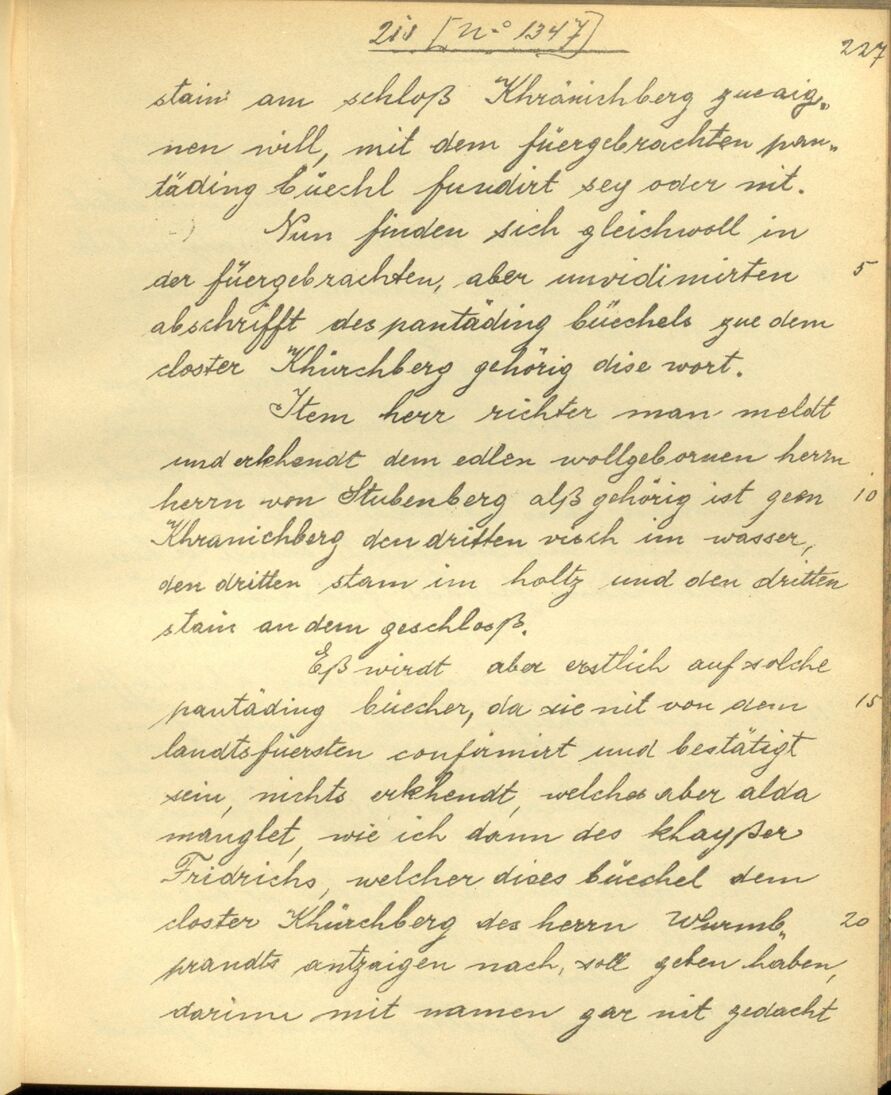 2is [N-o 1347]
227
stain am schloß Khränichberg zueaig„
nen will, mit dem füergebrachten pan„
täding büechl fundirt sey oder nit.
Nun finden sich gleichwoll in
der füergebrachten, aber unvidimirten 5
abschrifft des pantäding büechels zue dem
closter Khürchberg gehörig dise wort.
Item herr richter man meldt
und erkhendt dem edlen wollgebornen herrn
herrn von Stubenberg alß gehörig ist geen 10
Khranichberg den dritten visch im wasser,
den dritten stam im holtz und den dritten
stain an dem geschloß.
Eß wirdt aber erstlich auf solche
pantäding büecher, da sie nit von dem 15
landtsfüersten confirmirt und bestätigt
sein, nichts erkhendt, welches aber alda
manglet, wie ich dann des khayßer
Fridrichs, welcher dises büechel dem
closter Khürchberg des herrn Wurmb„ 20
prandts antzaigen nach, soll geben haben,
darinn mit namen gar nit gedacht